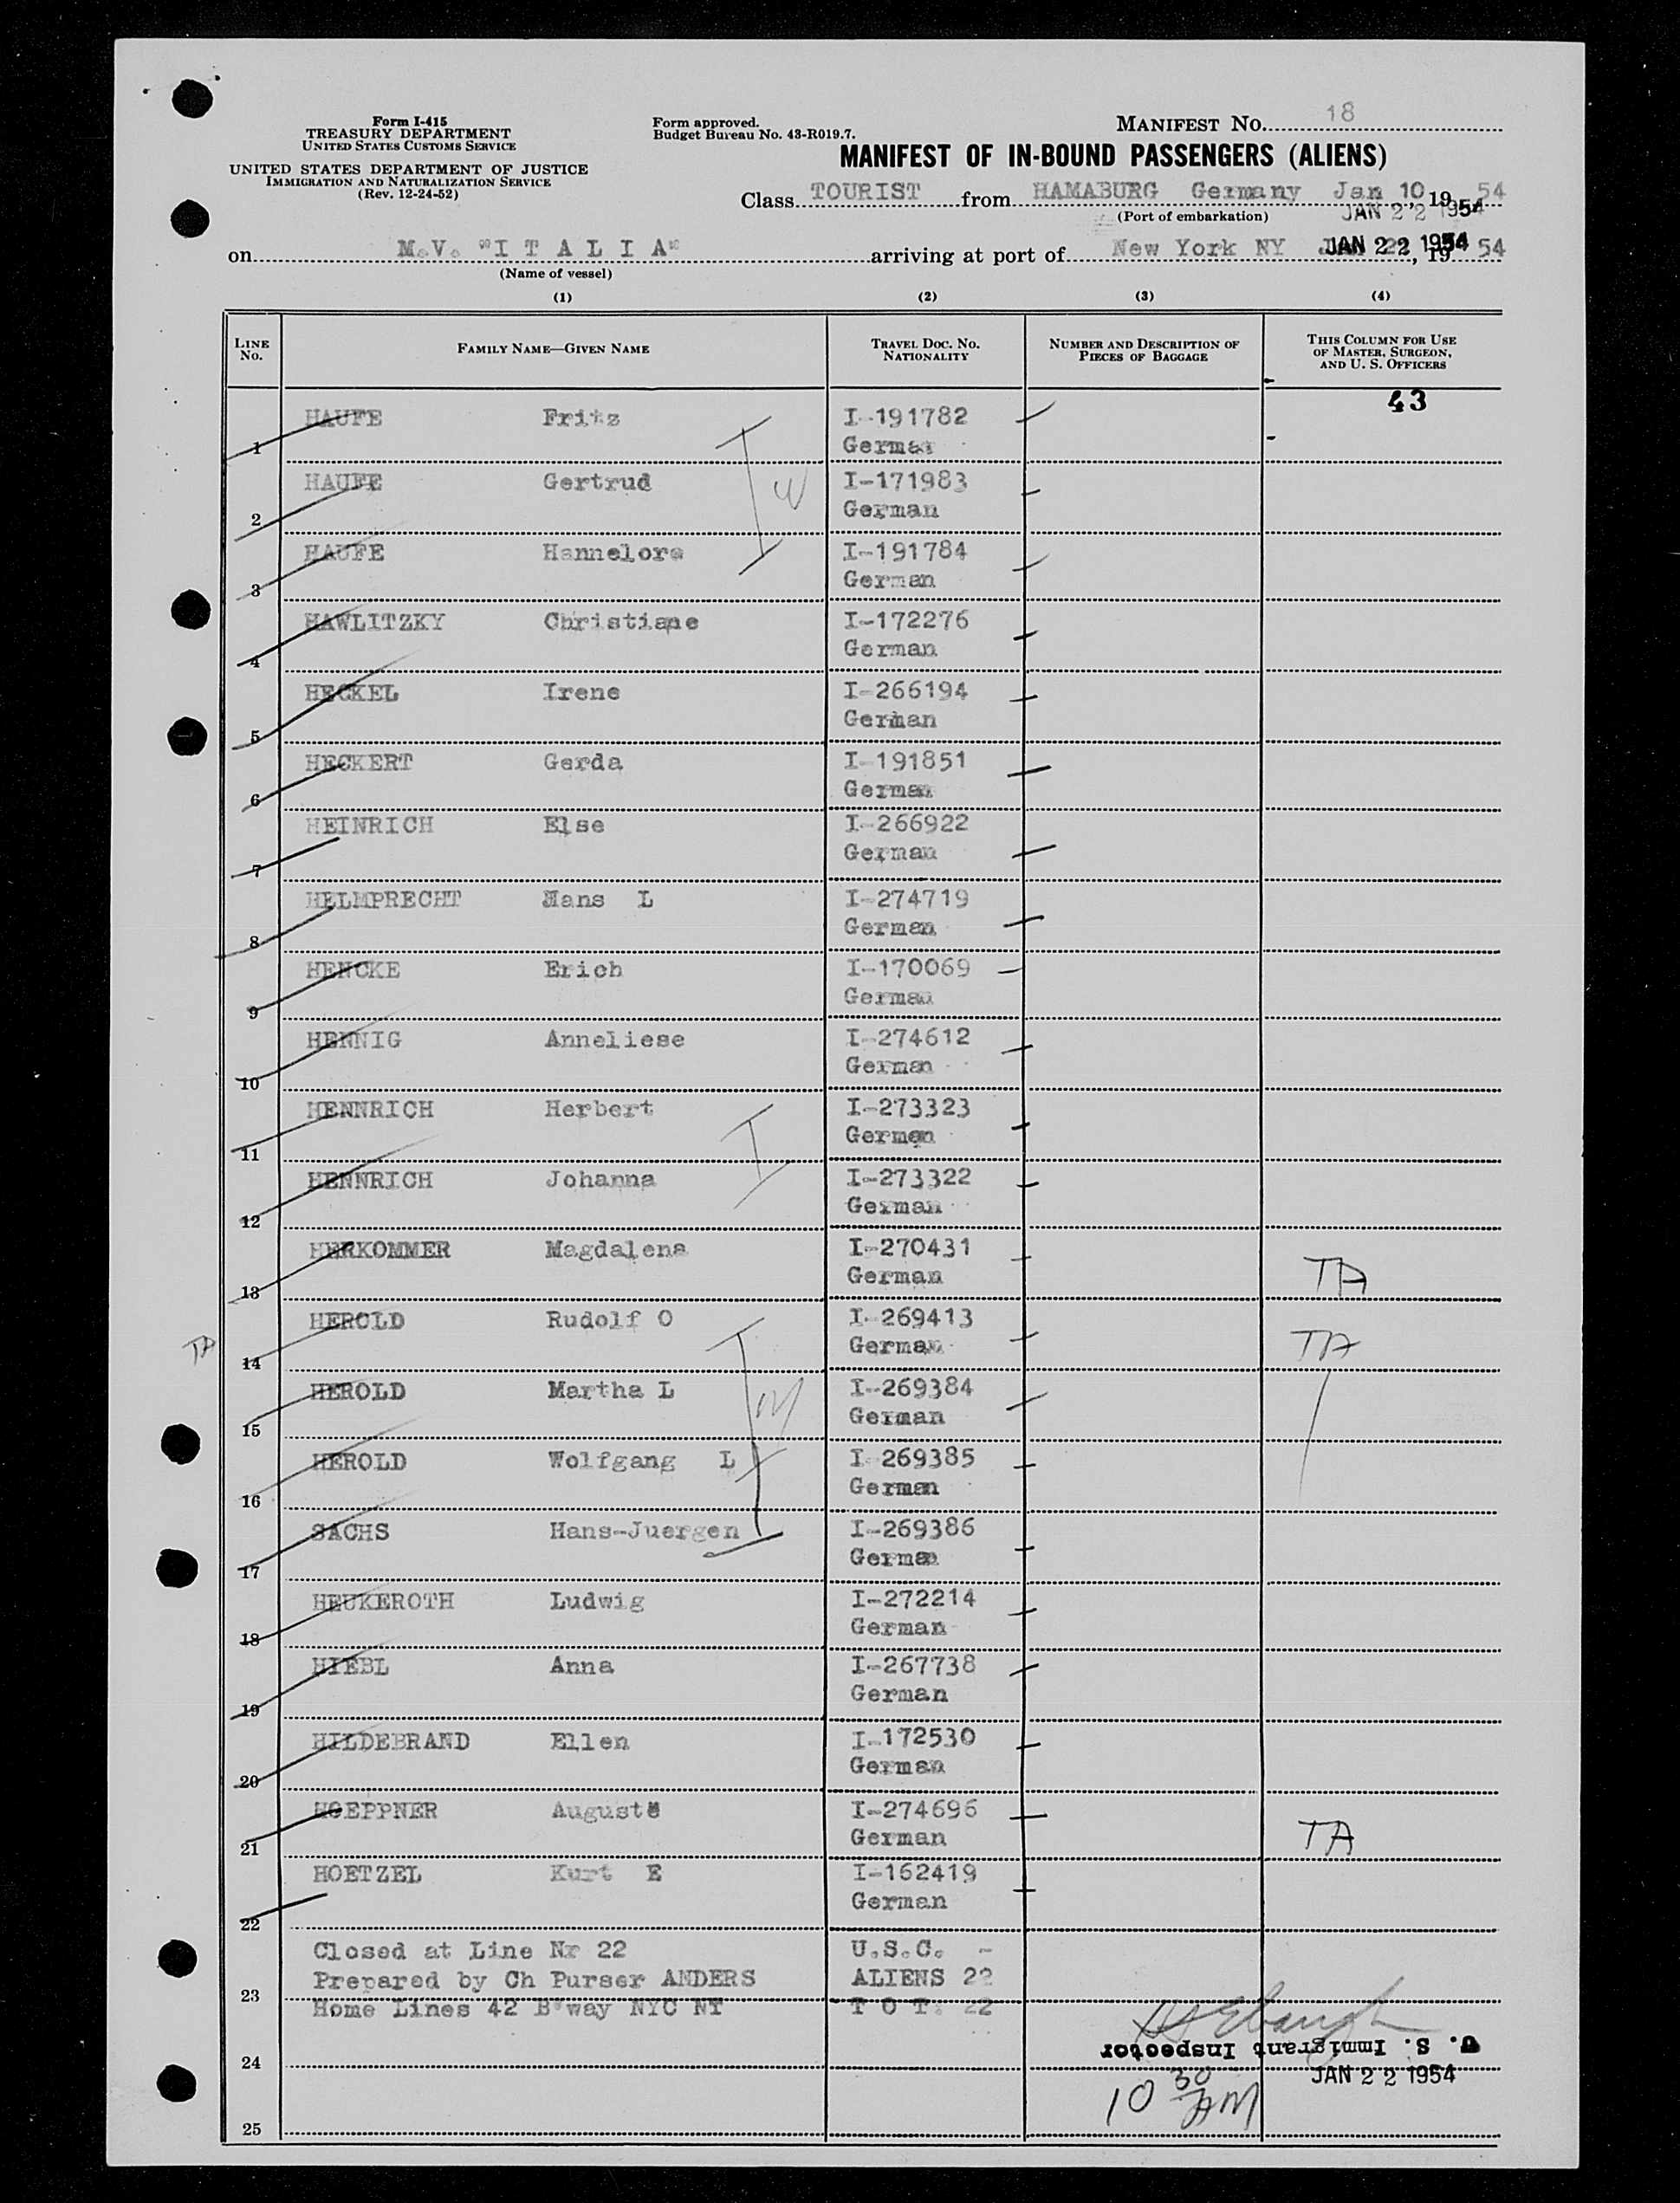 Form I-415
TREASURY DEPARTMENT
UNITED STATES CUSTOMS SERVICE
UNITED STATES DEPARTMENT OF JUSTICE
IMMIGRATION AND NATURALIZATION SERVICE
(Rev. 12-24-52)
Form approved.
Budget Bureau No. 43-R019.7.
MANIFEST NO. 18
MANIFEST OF IN-BOUND PASSENGERS (ALIENS)
Class TOURIST from HAMABURG Germany Jan 10, 19 54
(Port of embarkation) JAN 22 1954
on M.V. "I T A L I A" arriving at port of New York NY JAN 22 1954, 19 54
(Name of vessel)
(1) (2) (3) (4)
LINE NO. FAMILY NAME—GIVEN NAME TRAVEL DOC. NO. NATIONALITY NUMBER AND DESCRIPTION OF PIECES OF BAGGAGE THIS COLUMN FOR USE OF MASTER, SURGEON, AND U. S. OFFICERS
43
1 HAUFE Fritz I-191782 German
2 HAUFE Gertrud I-171983 German
3 HAUFE Hannelore I-191784 German
4 HAWLITZKY Christiane I-172276 German
5 HECKEL Irene I-266194 German
6 HECKERT Gerda I-191851 German
7 HEINRICH Else I-266922 German
8 HELMPRECHT Hans L I-274719 German
9 HENCKE Erich I-170069 German
10 HENNIG Anneliese I-274612 German
11 HENNRICH Herbert I-273323 German
12 HENNRICH Johanna I-273322 German
13 HERKOMMER Magdalena I-270431 German TA
TA 14 HEROLD Rudolf O I-269413 German TA
15 HEROLD Martha L I-269384 German
16 HEROLD Wolfgang L I-269385 German
17 SACHS Hans-Juergen I-269386 German
18 HEUKEROTH Ludwig I-272214 German
19 HIEBL Anna I-267738 German
20 HILDEBRAND Ellen I-172530 German
21 HOEPPNER Auguste I-274696 German TA
22 HOETZEL Kurt E I-162419 German
Closed at Line Nr 22 U.S.C. -
23 Prepared by Ch Purser ANDERS ALIENS 22
Home Lines 42 B'way NYC NY T O T: 22
U. S. Immigrant Inspector
24
JAN 22 1954
10 30 AM
25